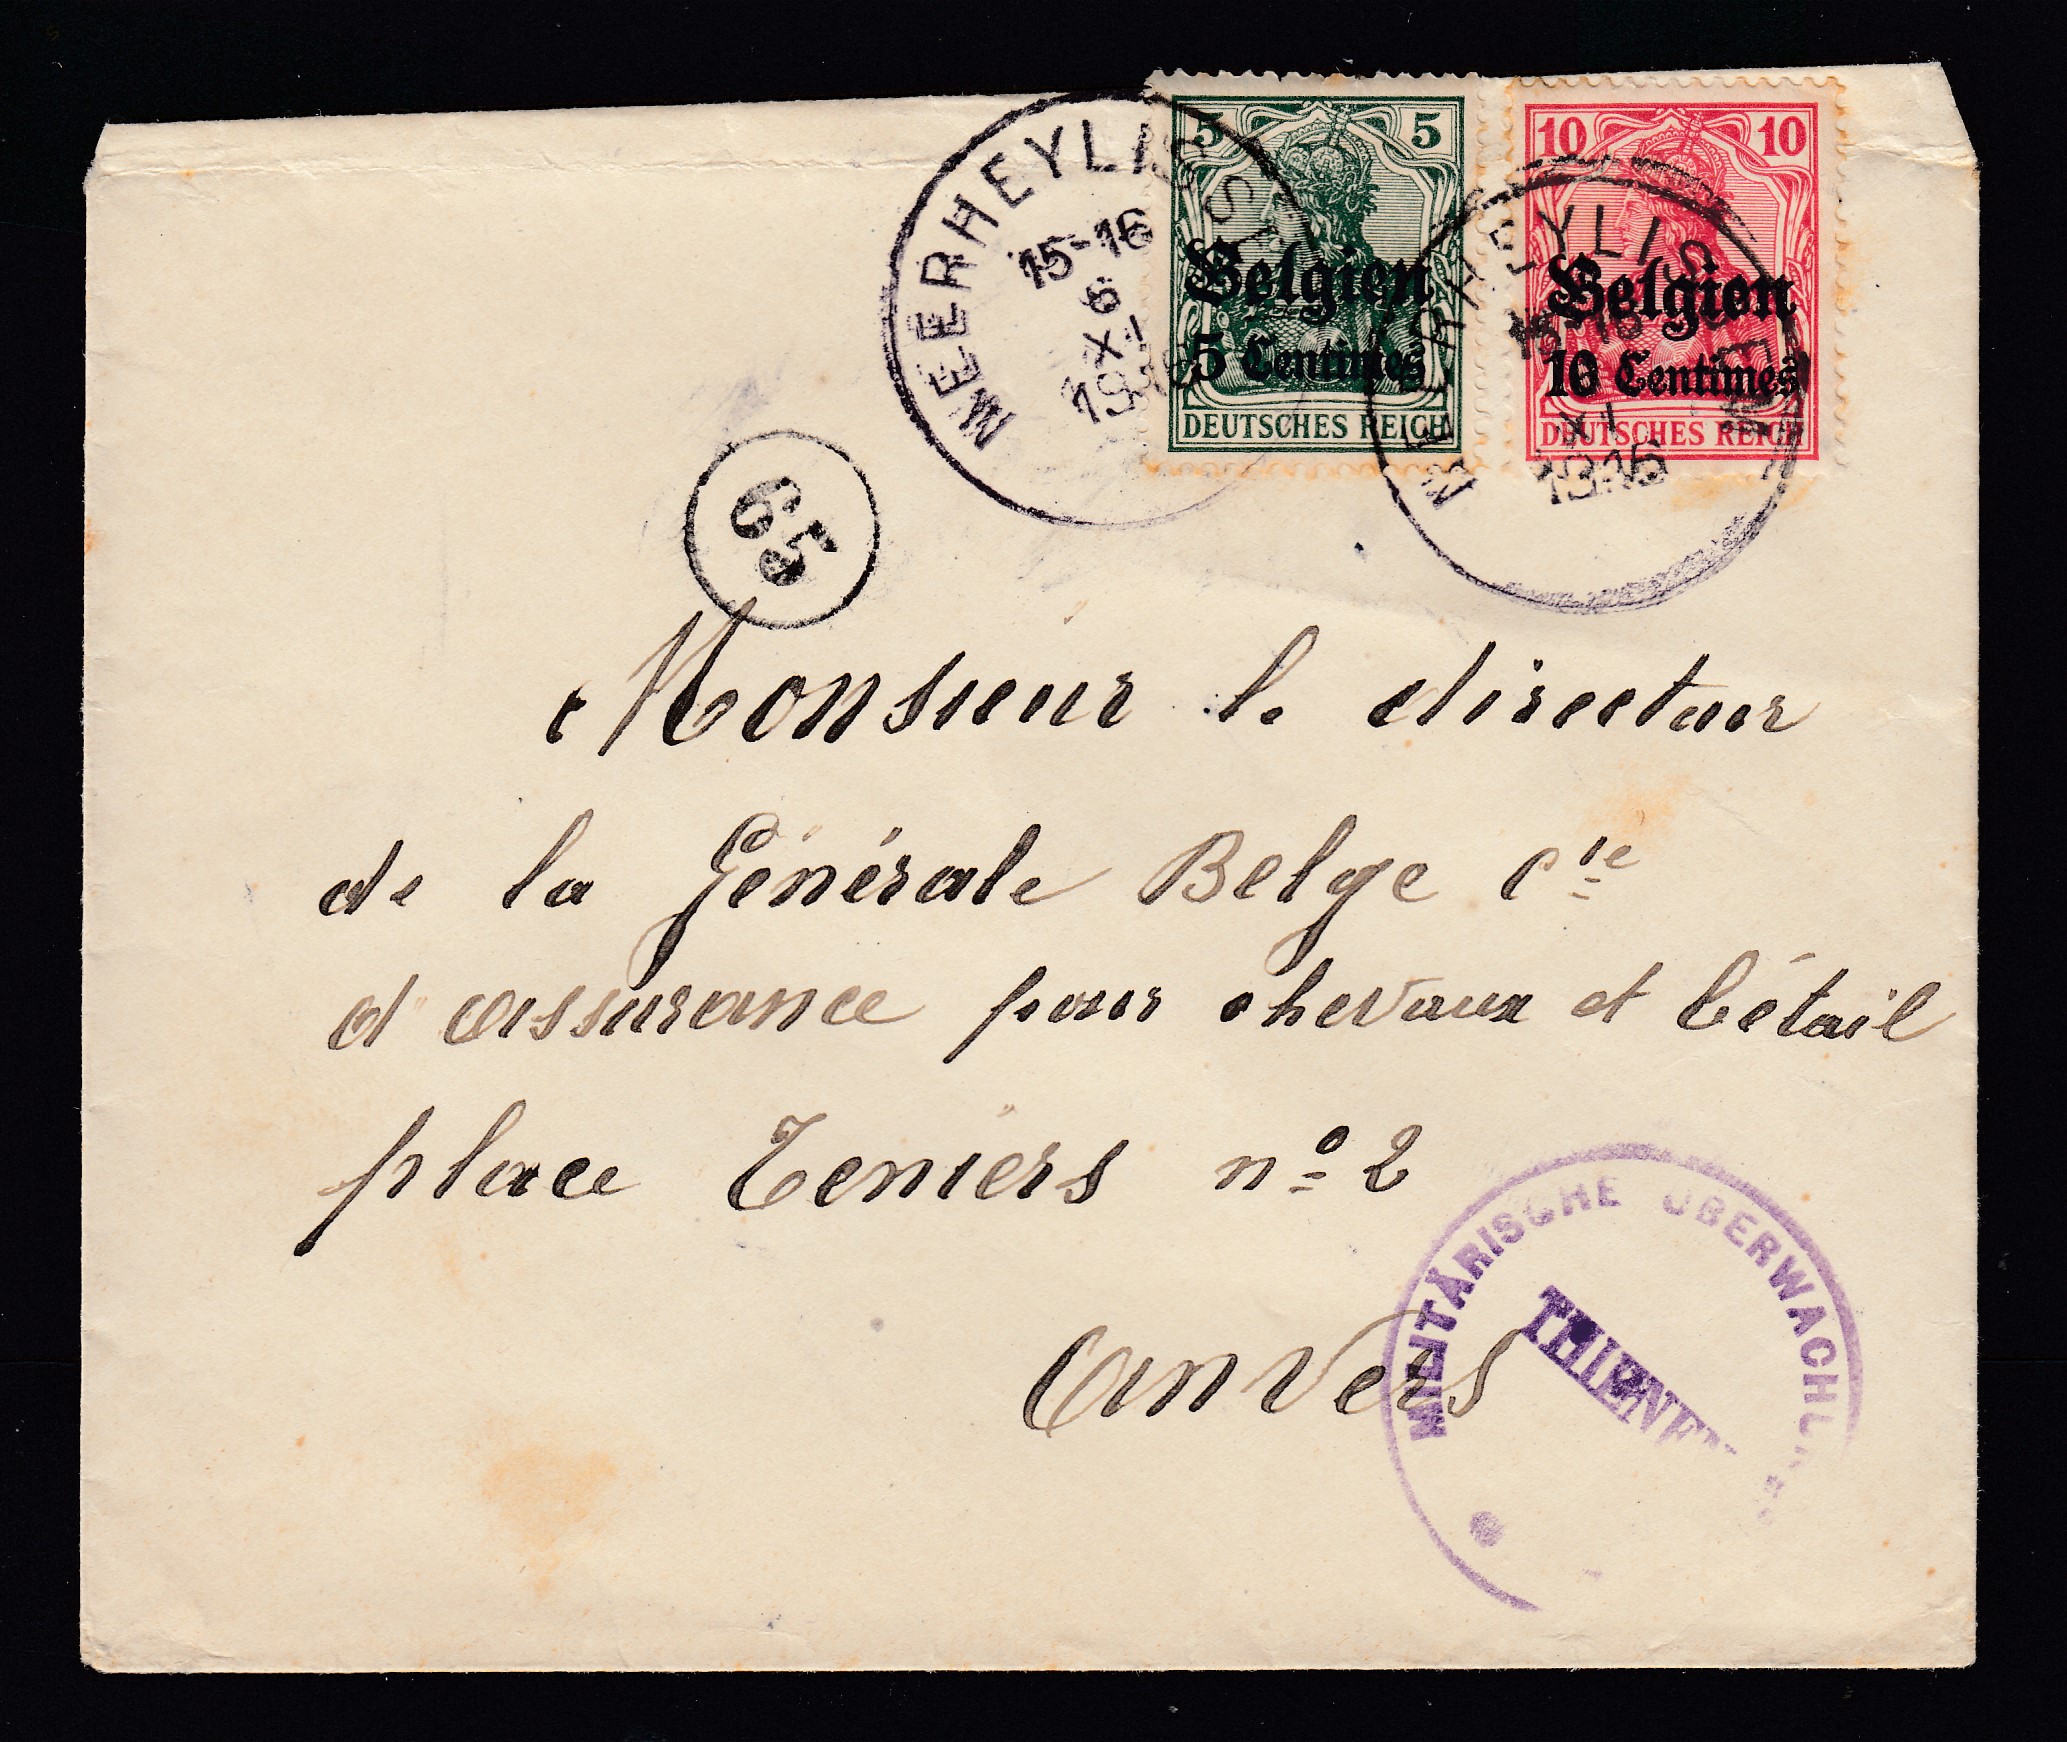 MEERHEYLISSEM
15-16
6
XI
19
5 5
Belgien
5 Centimes
DEUTSCHES REICH
10 10
Belgien
10 Centimes
DEUTSCHES REICH
MEERHEYLISSEM
15-16
XI
1916
65
Monsieur le directeur
de la Générale Belge Cie
d'assurance pour chevaux et bétail
place Teniers nº 2
Anvers
MILITÄRISCHE ÜBERWACHUNG
THIENEN